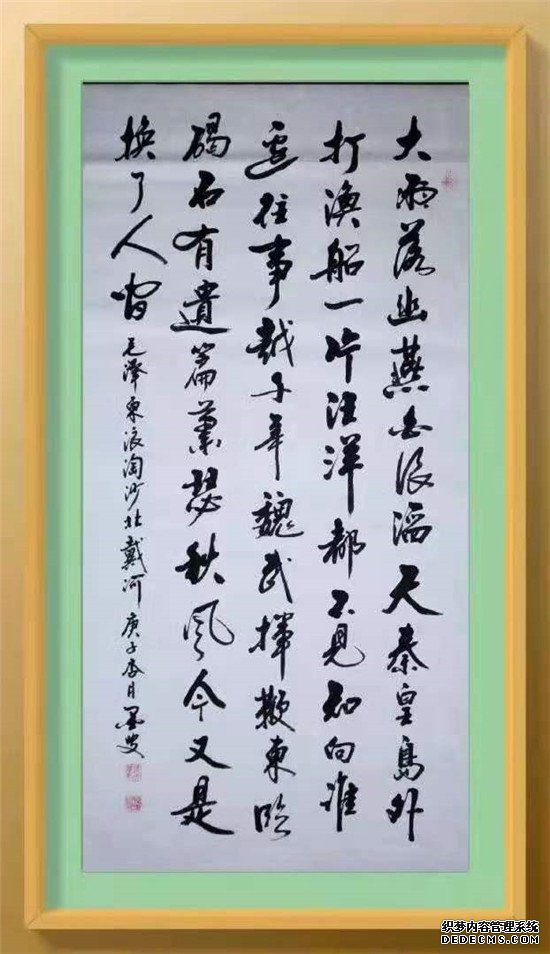 大雨落幽燕白浪滔天秦皇島外
打漁船一片汪洋都不見知向誰
邊往事越千年魏武揮鞭東臨
碣石有遺篇蕭瑟秋風今又是
換了人間
毛澤東浪淘沙北戴河 庚子春月墨叟
织梦内容管理系统
DEDECMS.COM